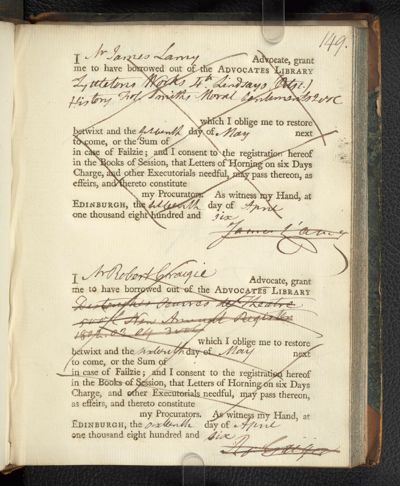 149.
I Mr James Lamy Advocate, grant
me to have borrowed out of the ADVOCATES LIBRARY
Lyttletons Works 4to Lindsays
History Smiths Moral Sentiments 2 vol
which I oblige me to restore
betwixt and the day of May next
to come, or the Sum of
in case of Failzie; and I consent to the registration hereof
in the Books of Session, that Letters of Horning on six Days
Charge, and other Executorials needful, may pass thereon, as
effeirs, and thereto constitute
my Procurators. As witness my Hand, at
EDINBURGH, the day of April
one thousand eight hundred and six
James Lamy
I Mr Robert Craigie Advocate, grant
me to have borrowed out of the ADVOCATES LIBRARY
Destouches Oeuvres de Theatre
New Annual Register
which I oblige me to restore
betwixt and the sixteenth day of May next
to come, or the Sum of
in case of Failzie; and I consent to the registration hereof
in the Books of Session, that Letters of Horning on six Days
Charge, and other Executorials needful, may pass thereon,
as effeirs, and thereto constitute
my Procurators. As witness my Hand, at
EDINBURGH, the sixteenth day of April
one thousand eight hundred and six
Ro Craigie